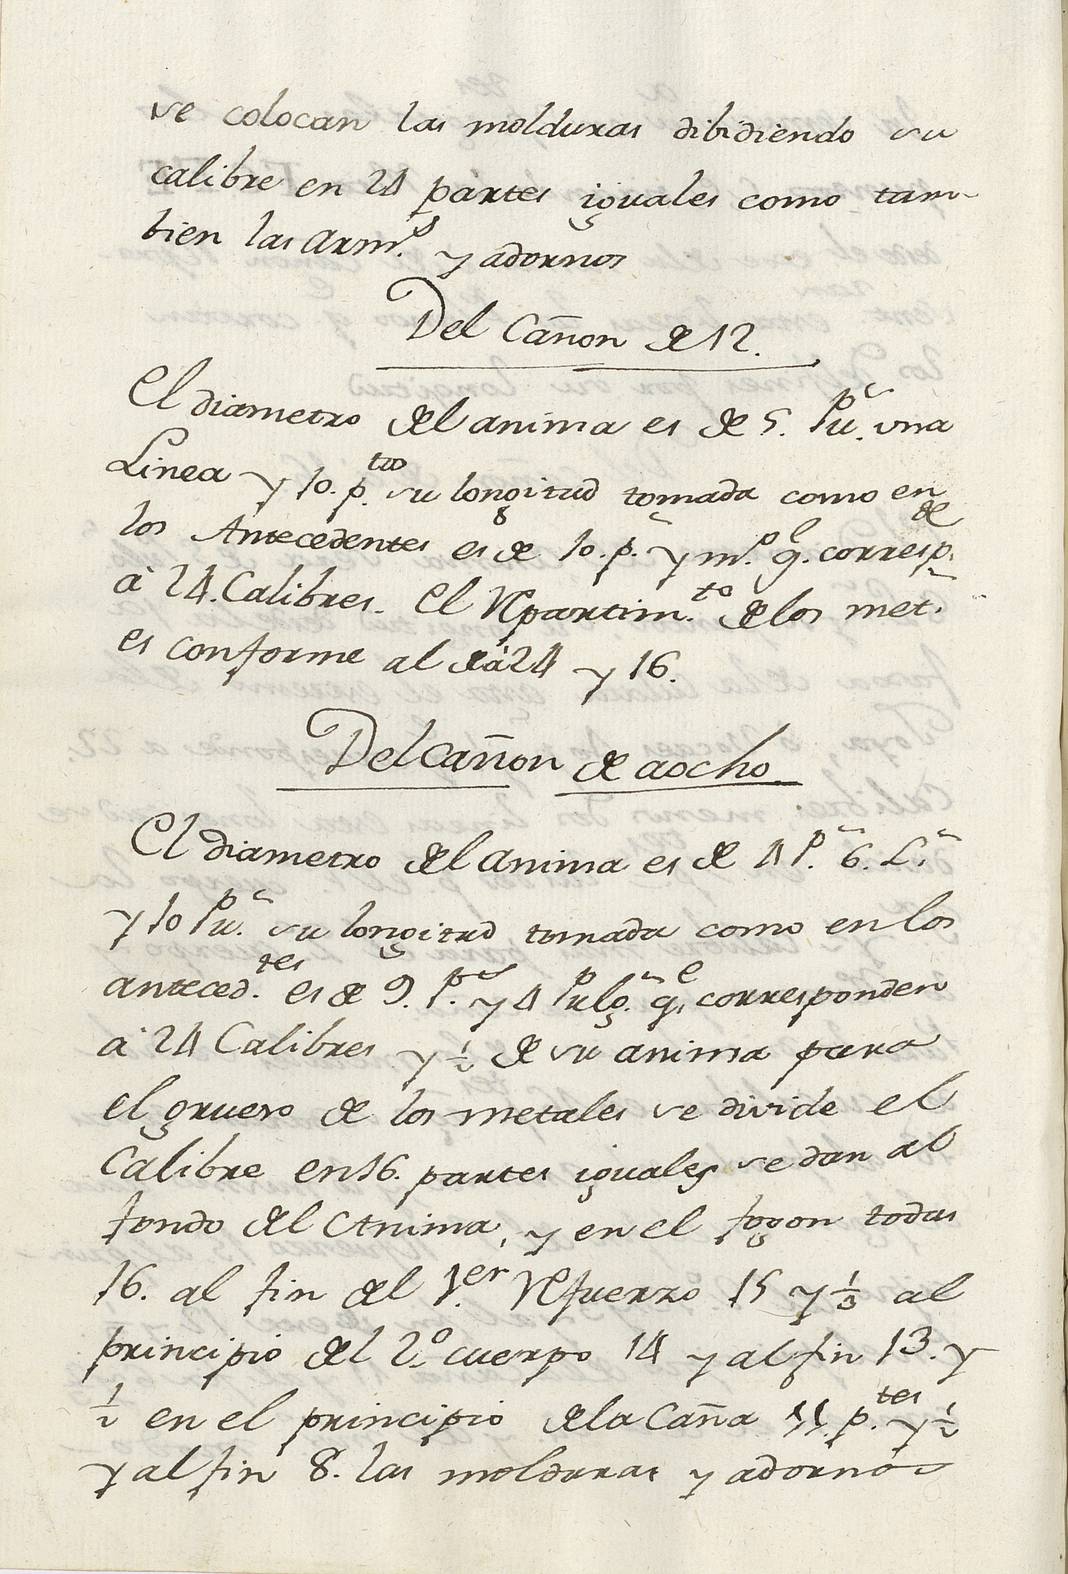 se colocan las molduras dibidiendo su
calibre en 24 partes iguales como tam-
bien las arm.s y adornos
Del Cañon de 12.
El diametro del anima es de 5. Pu.s una
Linea y 10. p.tos su longitud tomada como en
los Antecedentes es de 10. p.s y m.o q.e corresp.de
à 24. Calibres. El Repartim.to de los met.s
es conforme al de à 24 y 16.
Del Cañon de a ocho
El diametro del anima es de 4 P.s 6. L.s
y 10 Pu.s su longitud tomada como en los
anteced.tes es de 9. P.s y 4 Pulg.s q.e corresponden
à 24 Calibres y 1/2 de su anima para
el grueso de los metales se divide el
Calibre en 16. partes iguales se dan al
fondo del Anima, y en el fogon todas
16. al fin del 1.er Refuerzo 15 y 1/3 al
principio del 2.o cuerpo 14 y al fin 13. y
1/2 en el principio de la Caña 11 p.tes y 1/2
y al fin 8. las molduras y adornos